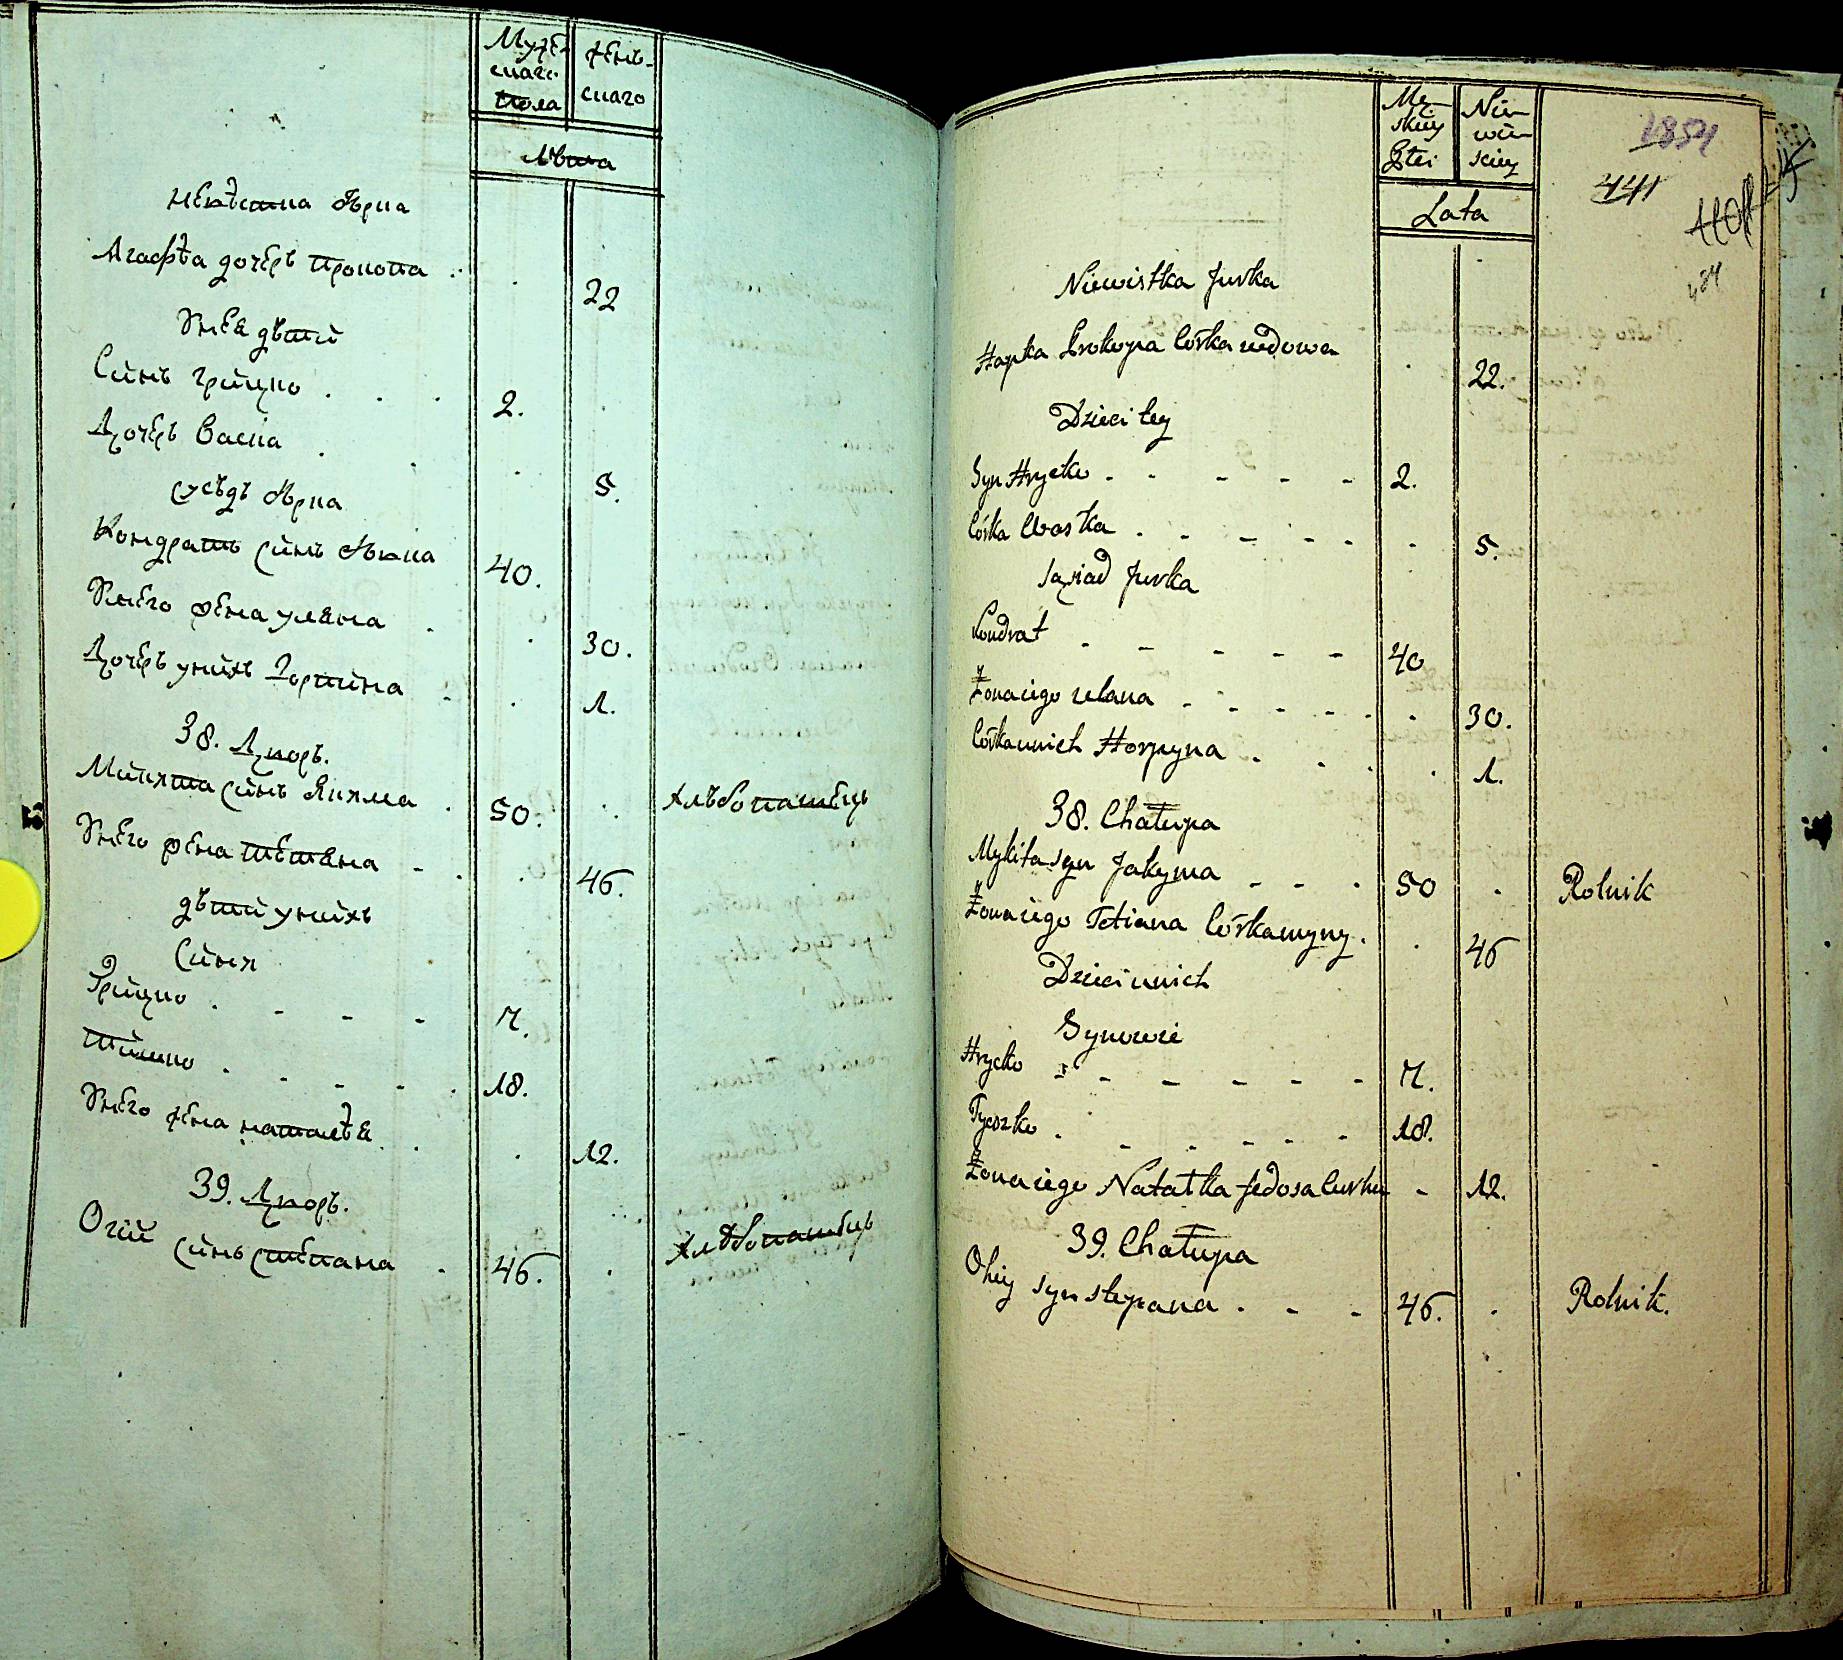 Мужескаго пола
женскаго
Лѣта
невѣстка Юрка
Агафѣа дочеръ Прокопа . . 22
Унея дѣтй
Синъ Грицко . . . 2. .
Дочеръ Васка . . . 5.
сусѣдъ Юрка
Кондратъ синъ 40.
Унего жена Уляна . . 30.
Дочеръ унихъ Горпина . . 1.
38. Дворъ.
Микита синъ Якима . 50. . хлѣбопашецъ
Унего жена Тетяна - . . 46.
дѣтй унихъ
Синя
Грицко . - - - 7.
Тишко . - - - . 18.
Унего жена наталѣя . . . 12.
39. Дворъ.
Огій синъ степана . 46. . хлѣбопашецъ
Męskiey Płci
Niewieskiey
Lata
1854
441
484
Niewistka Jurka
Hapka Prokopa Córka wdowa . 22.
Dzieci tey
Syn Hrycko . - - - - 2.
Córka Waska . - - - - . 5.
sąsiad Jurka
Kondrat - - - - - 40
Żona iego Ulana - - - - - . 30.
Córka unich Horpyna . . . . 1.
38. Chałupa
Mykita syn Jakyma - - . 50 . Rolnik
Żona iego Tetiana Córka . . 46
Dzieci unich
Synowie
Hrycko - - - - - - 7.
Tyszko . - - - - - 18.
Żona iego Natałka Fedosa Curka - 12.
39. Chałupa
Ohiy syn stepana . - - 46. . Rolnik.